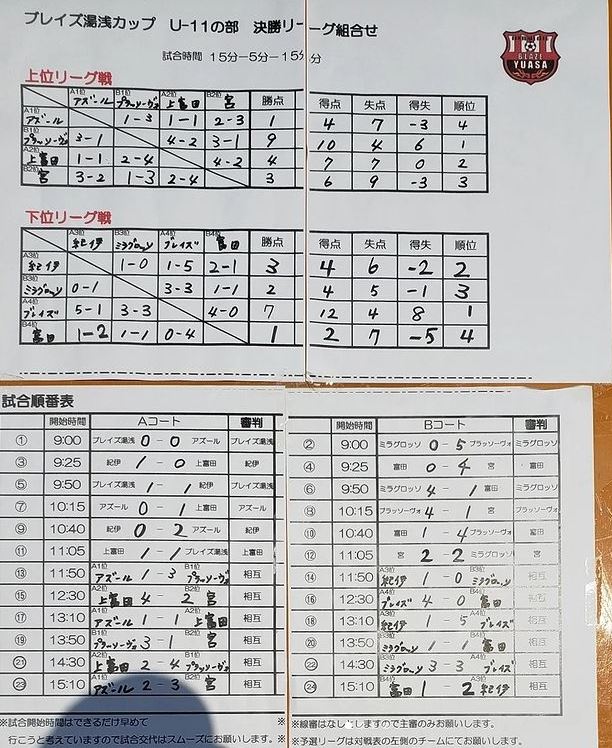 ブレイズ湯浅カップ U-11の部 決勝リーグ組合せ
試合時間 15分-5分-15分
BLAZE
YUASA
上位リーグ戦
A1位 アズール B1位 プラッソーヴォ A2位 上富田 B2位 宮 勝点 得点 失点 得失 順位
A1位 アズール 1-3 1-1 2-3 1 4 7 -3 4
B1位 プラッソーヴォ 3-1 4-2 3-1 9 10 4 6 1
A2位 上富田 1-1 2-4 4-2 4 7 7 0 2
B2位 宮 3-2 1-3 2-4 3 6 9 -3 3
下位リーグ戦
A3位 紀伊 B3位 ミラグロッソ A4位 ブレイズ B4位 富田 勝点 得点 失点 得失 順位
A3位 紀伊 1-0 1-5 2-1 3 4 6 -2 2
B3位 ミラグロッソ 0-1 3-3 1-1 2 4 5 -1 3
A4位 ブレイズ 5-1 3-3 4-0 7 12 4 8 1
B4位 富田 1-2 1-1 0-4 1 2 7 -5 4
試合順番表
開始時間 Aコート 審判
① 9:00 ブレイズ湯浅 0-0 アズール ブレイズ湯浅
③ 9:25 紀伊 1-0 上富田 紀伊
⑤ 9:50 ブレイズ湯浅 1-1 紀伊 ブレイズ湯浅
⑦ 10:15 アズール 0-1 上富田 アズール
⑨ 10:40 紀伊 0-2 アズール 紀伊
⑪ 11:05 上富田 1-1 ブレイズ湯浅 上富田
⑬ 11:50 A1位 アズール 1-3 B1位 プラッソーヴォ 相互
⑮ 12:30 A2位 上富田 4-2 B2位 宮 相互
⑰ 13:10 A1位 アズール 1-1 A2位 上富田 相互
⑲ 13:50 B1位 プラッソーヴォ 3-1 B2位 宮 相互
㉑ 14:30 A2位 上富田 2-4 B1位 プラッソーヴォ 相互
㉓ 15:10 A1位 アズール 2-3 B2位 宮 相互
※試合開始時間はできるだけ早めて
行こうと考えていますので試合交代はスムーズにお願いします。
開始時間 Bコート 審判
② 9:00 ミラグロッソ 0-5 プラッソーヴォ ミラグロッソ
④ 9:25 富田 0-4 宮 富田
⑥ 9:50 ミラグロッソ 4-1 富田 ミラグロッソ
⑧ 10:15 プラッソーヴォ 4-1 宮 プラッソーヴォ
⑩ 10:40 富田 1-4 プラッソーヴォ 富田
⑫ 11:05 宮 2-2 ミラグロッソ 宮
⑭ 11:50 A3位 紀伊 1-0 B3位 ミラグロッソ 相互
⑯ 12:30 A4位 ブレイズ 4-0 B4位 富田 相互
⑱ 13:10 A3位 紀伊 1-5 A4位 ブレイズ 相互
⑳ 13:50 B3位 ミラグロッソ 1-1 B4位 富田 相互
㉒ 14:30 B3位 ミラグロッソ 3-3 A4位 ブレイズ 相互
㉔ 15:10 B4位 富田 1-2 A3位 紀伊 相互
※線審はなしとしますので主審のみお願いします。
※予選リーグは対戦表の左側のチームにてお願いします。